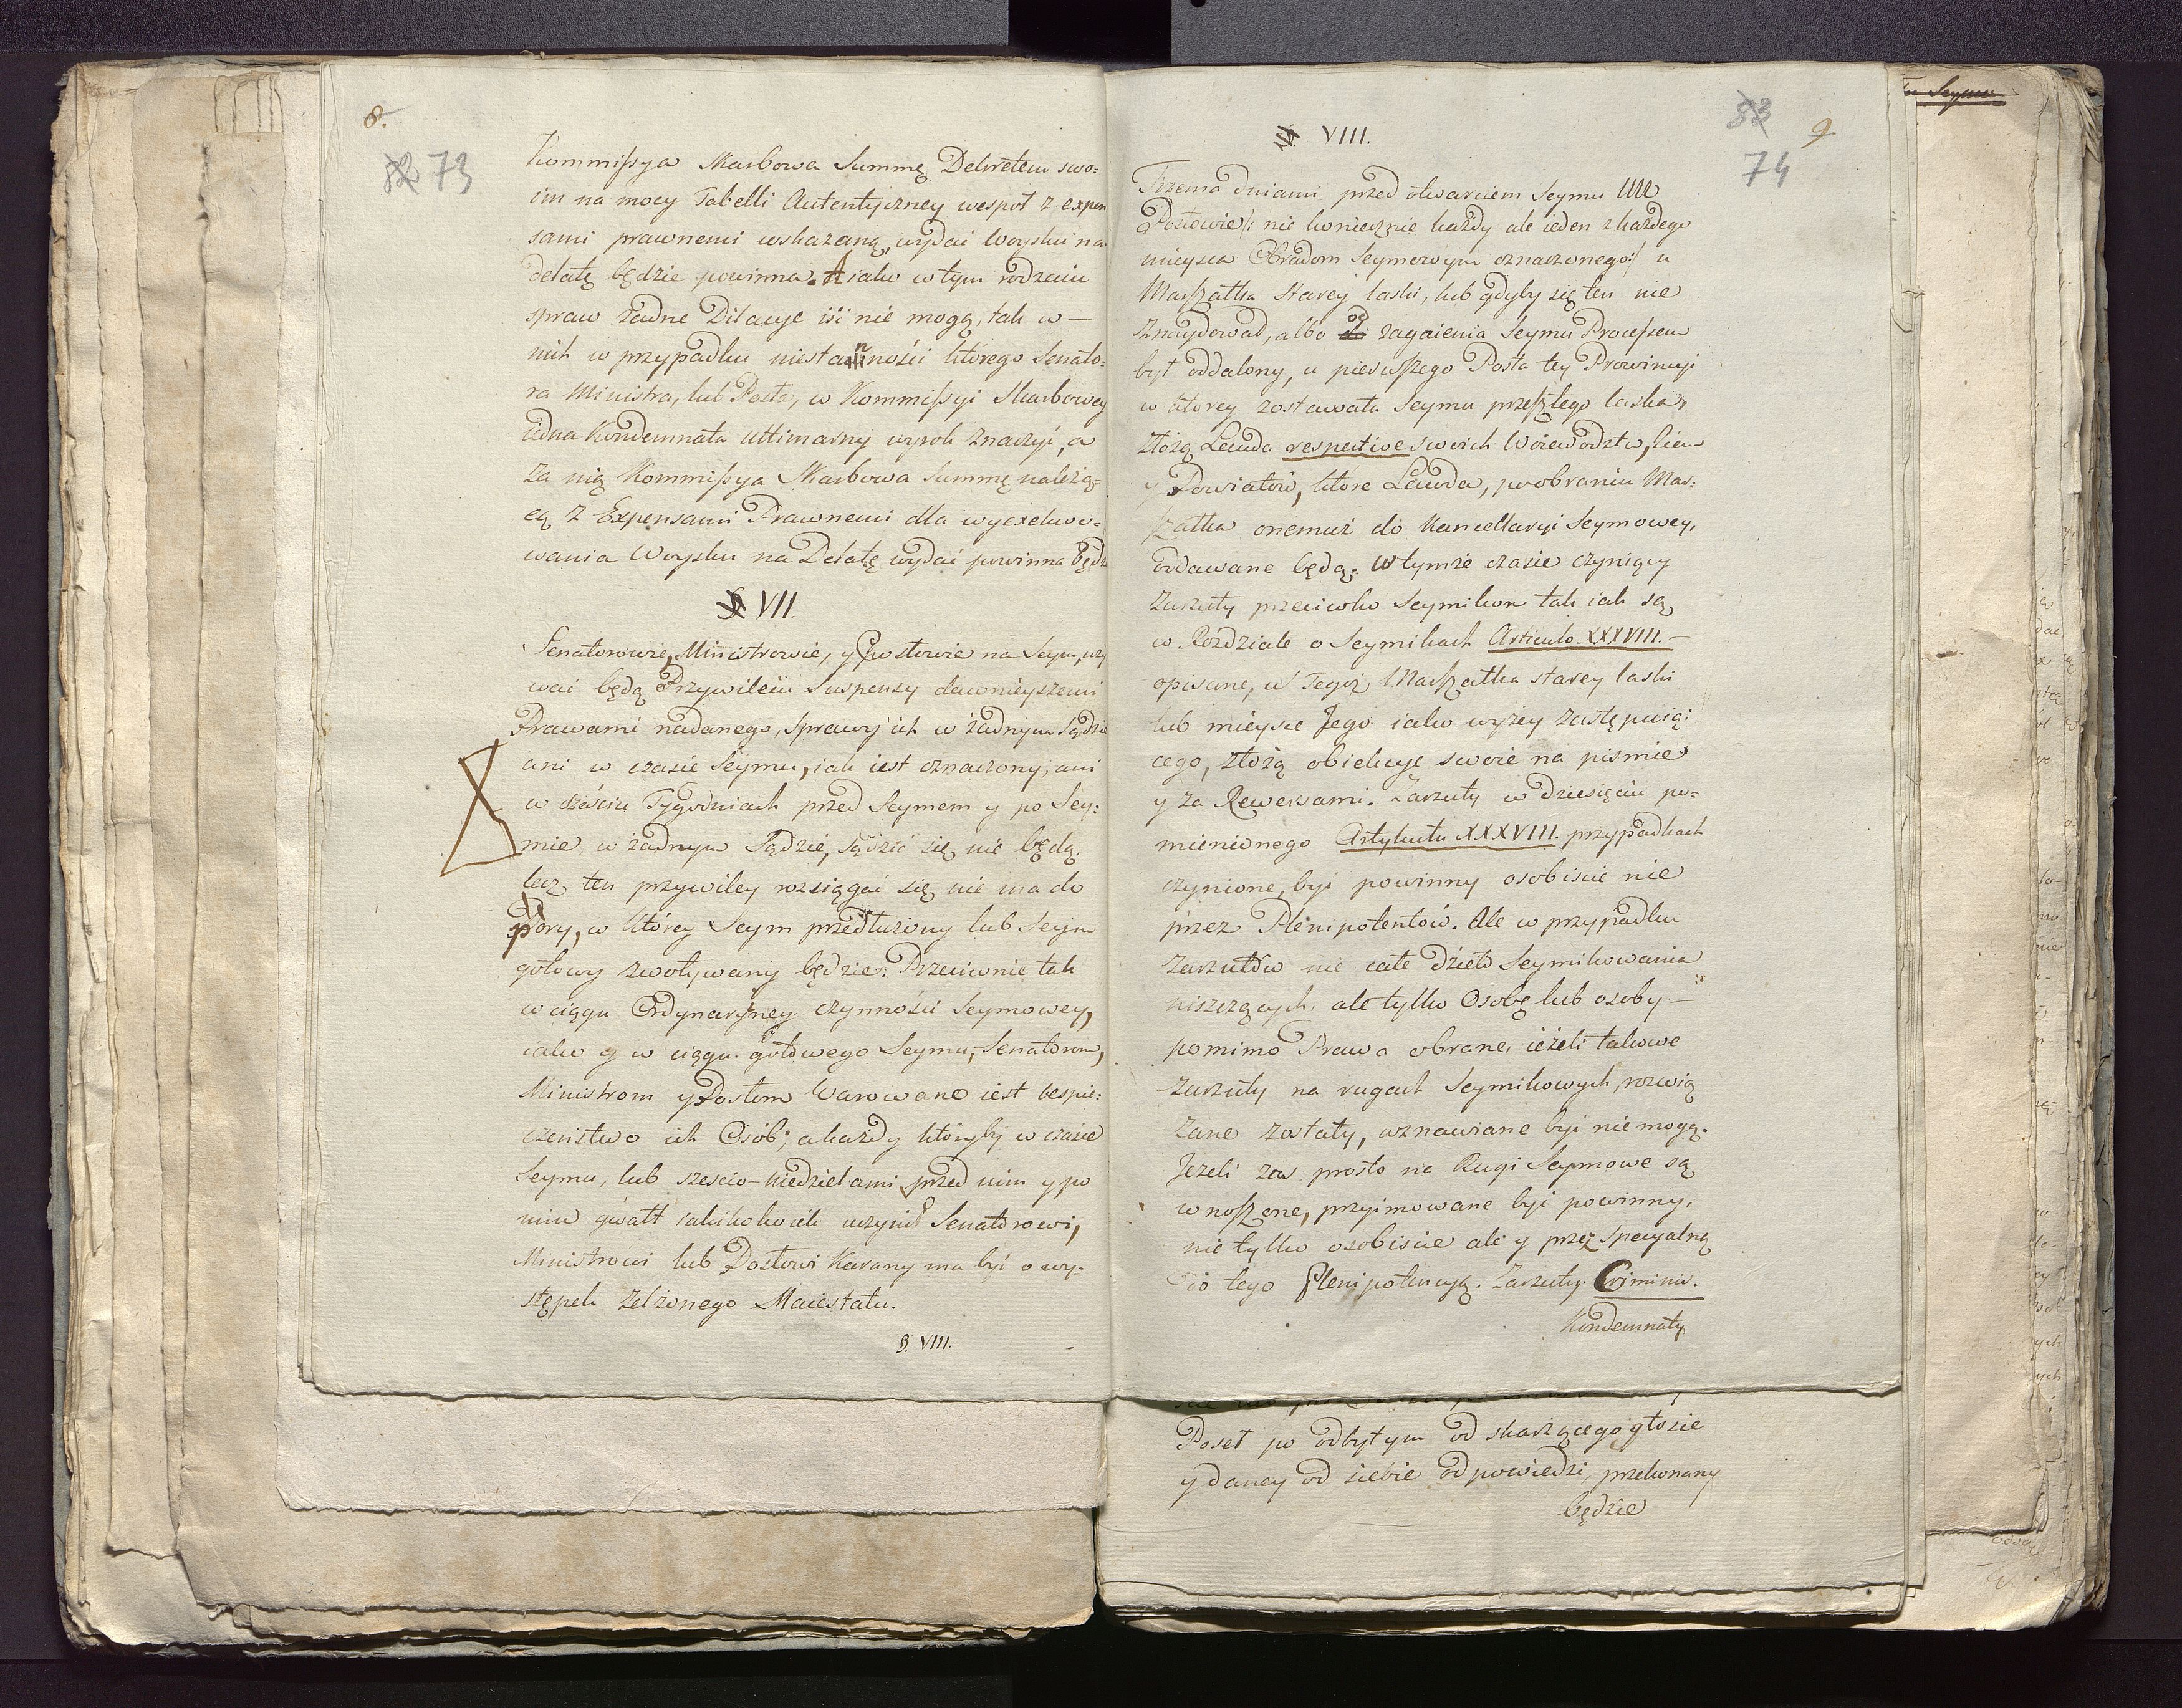 8.
82 73
Kommissya Skarbowa Summę Dekretem swo=
im na mocy Tabelli Autentyczney wespoł z expen
sami prawnemi wskazaną, wydać Woysku na
delatę będzie powinna. A iako w tym rodzaiu
spraw żadne Dilacye iść nie mogą, tak w —
nich w przypadku niestanności którego Senato=
ra Ministra, lub Posła, w Kommissyi Skarbowey
iedna Kondemnata Ultimarny wyrok znaczyć, a
za nią Kommissya Skarbowa Summę należą=
cą z Expensami Prawnemi dla wyexekwo=
wania Woysku na Delatę wydać powinna będz
§ VII.
Senatorowie, Ministrowie, y Posłowie na Seym, uży
wać będą Przywileiu Suspensy dawnieyszemi
Prawami nadanego, sprawy ich w żadnym Sądzie
ani w czasie Seymu, iak iest oznaczony, ani
w sześciu Tygodniach przed Seymem y po Sey=
mie w żadnym Sądzie, sądzić się nie będą.
lecz ten przywiley rozsiągać się nie ma do
pory, w którey Seym przedłużony lub Seym
gotowy zwoływany będzie. Przeciwnie tak
w ciągu Ordynaryney czynności Seymowey,
iako y w ciągu gotowego Seymu, Senatorom,
Ministrom y Posłom Warowane iest bespie=
czeństwo ich Osób; a każdy któryby w czasie
Seymu, lub szescio-niedzielami przed nim y po
nim gwałt iakikolwiek uczynił Senatorowi,
Ministrowi lub Posłowi Karany ma być o wy=
stępek zelżonego Maiestatu.
§. VIII.
83 9.
74
§ VIII.
Trzema dniami przed otwarciem Seymu UUU
Posłowie /: nie koniecznie każdy ale ieden z każdego
mieysca Obradom Seymowym oznaczonego :/ u
Marszałka starey laski, lub gdyby się ten nie
znaydował, albo od zagaienia Seymu Processem
był oddalony, u pierwszego Posła tey Prowincyi
w ktorey zostawała Seymu przeszłego laska,
złożą Lauda respective swoich Woiewodztw, Ziem
y Powiatów, które Lauda, po obraniu Mar=
szałka onemuż do Kancellaryi Seymowey,
oddawane będą. W tymże czasie czyniący
Zarzuty przeciwko Seymikom tak iak są
w Rozdziale o Seymikach Articulo XXXVIII. —
opisane, u Tegoż Marszałka starey laski
lub mieysce Jego iako wyzey zastępuią=
cego, złożą obiekcye swoie na pismie
y za Rewersami. Zarzuty w dziesięciu po=
mienionego Artykułu XXXVIII. przypadkach
czynione, być powinny osobiscie nie
przez Plenipotentów. Ale w przypadku
Zarzutów nie całe dzieło Seymikowania
niszczących, ale tylko Osobę lub osoby —
pomimo Prawa obrane, ieżeli takowe
zarzuty na rugach Seymikowych rozwią
zane zostały, wznawiane być nie mogą.
Jeżeli zas prosto na Rugi Seymowe są
wnoszone, przyimowane być powinny,
nie tylko osobiscie ale y przez specyalną
do tego Plenipotencyą. Zarzuty Criminis.
Kondemnaty
Poseł po odbytym od skarżącego głosie
y daney od siebie odpowiedzi, przekonany
będzie